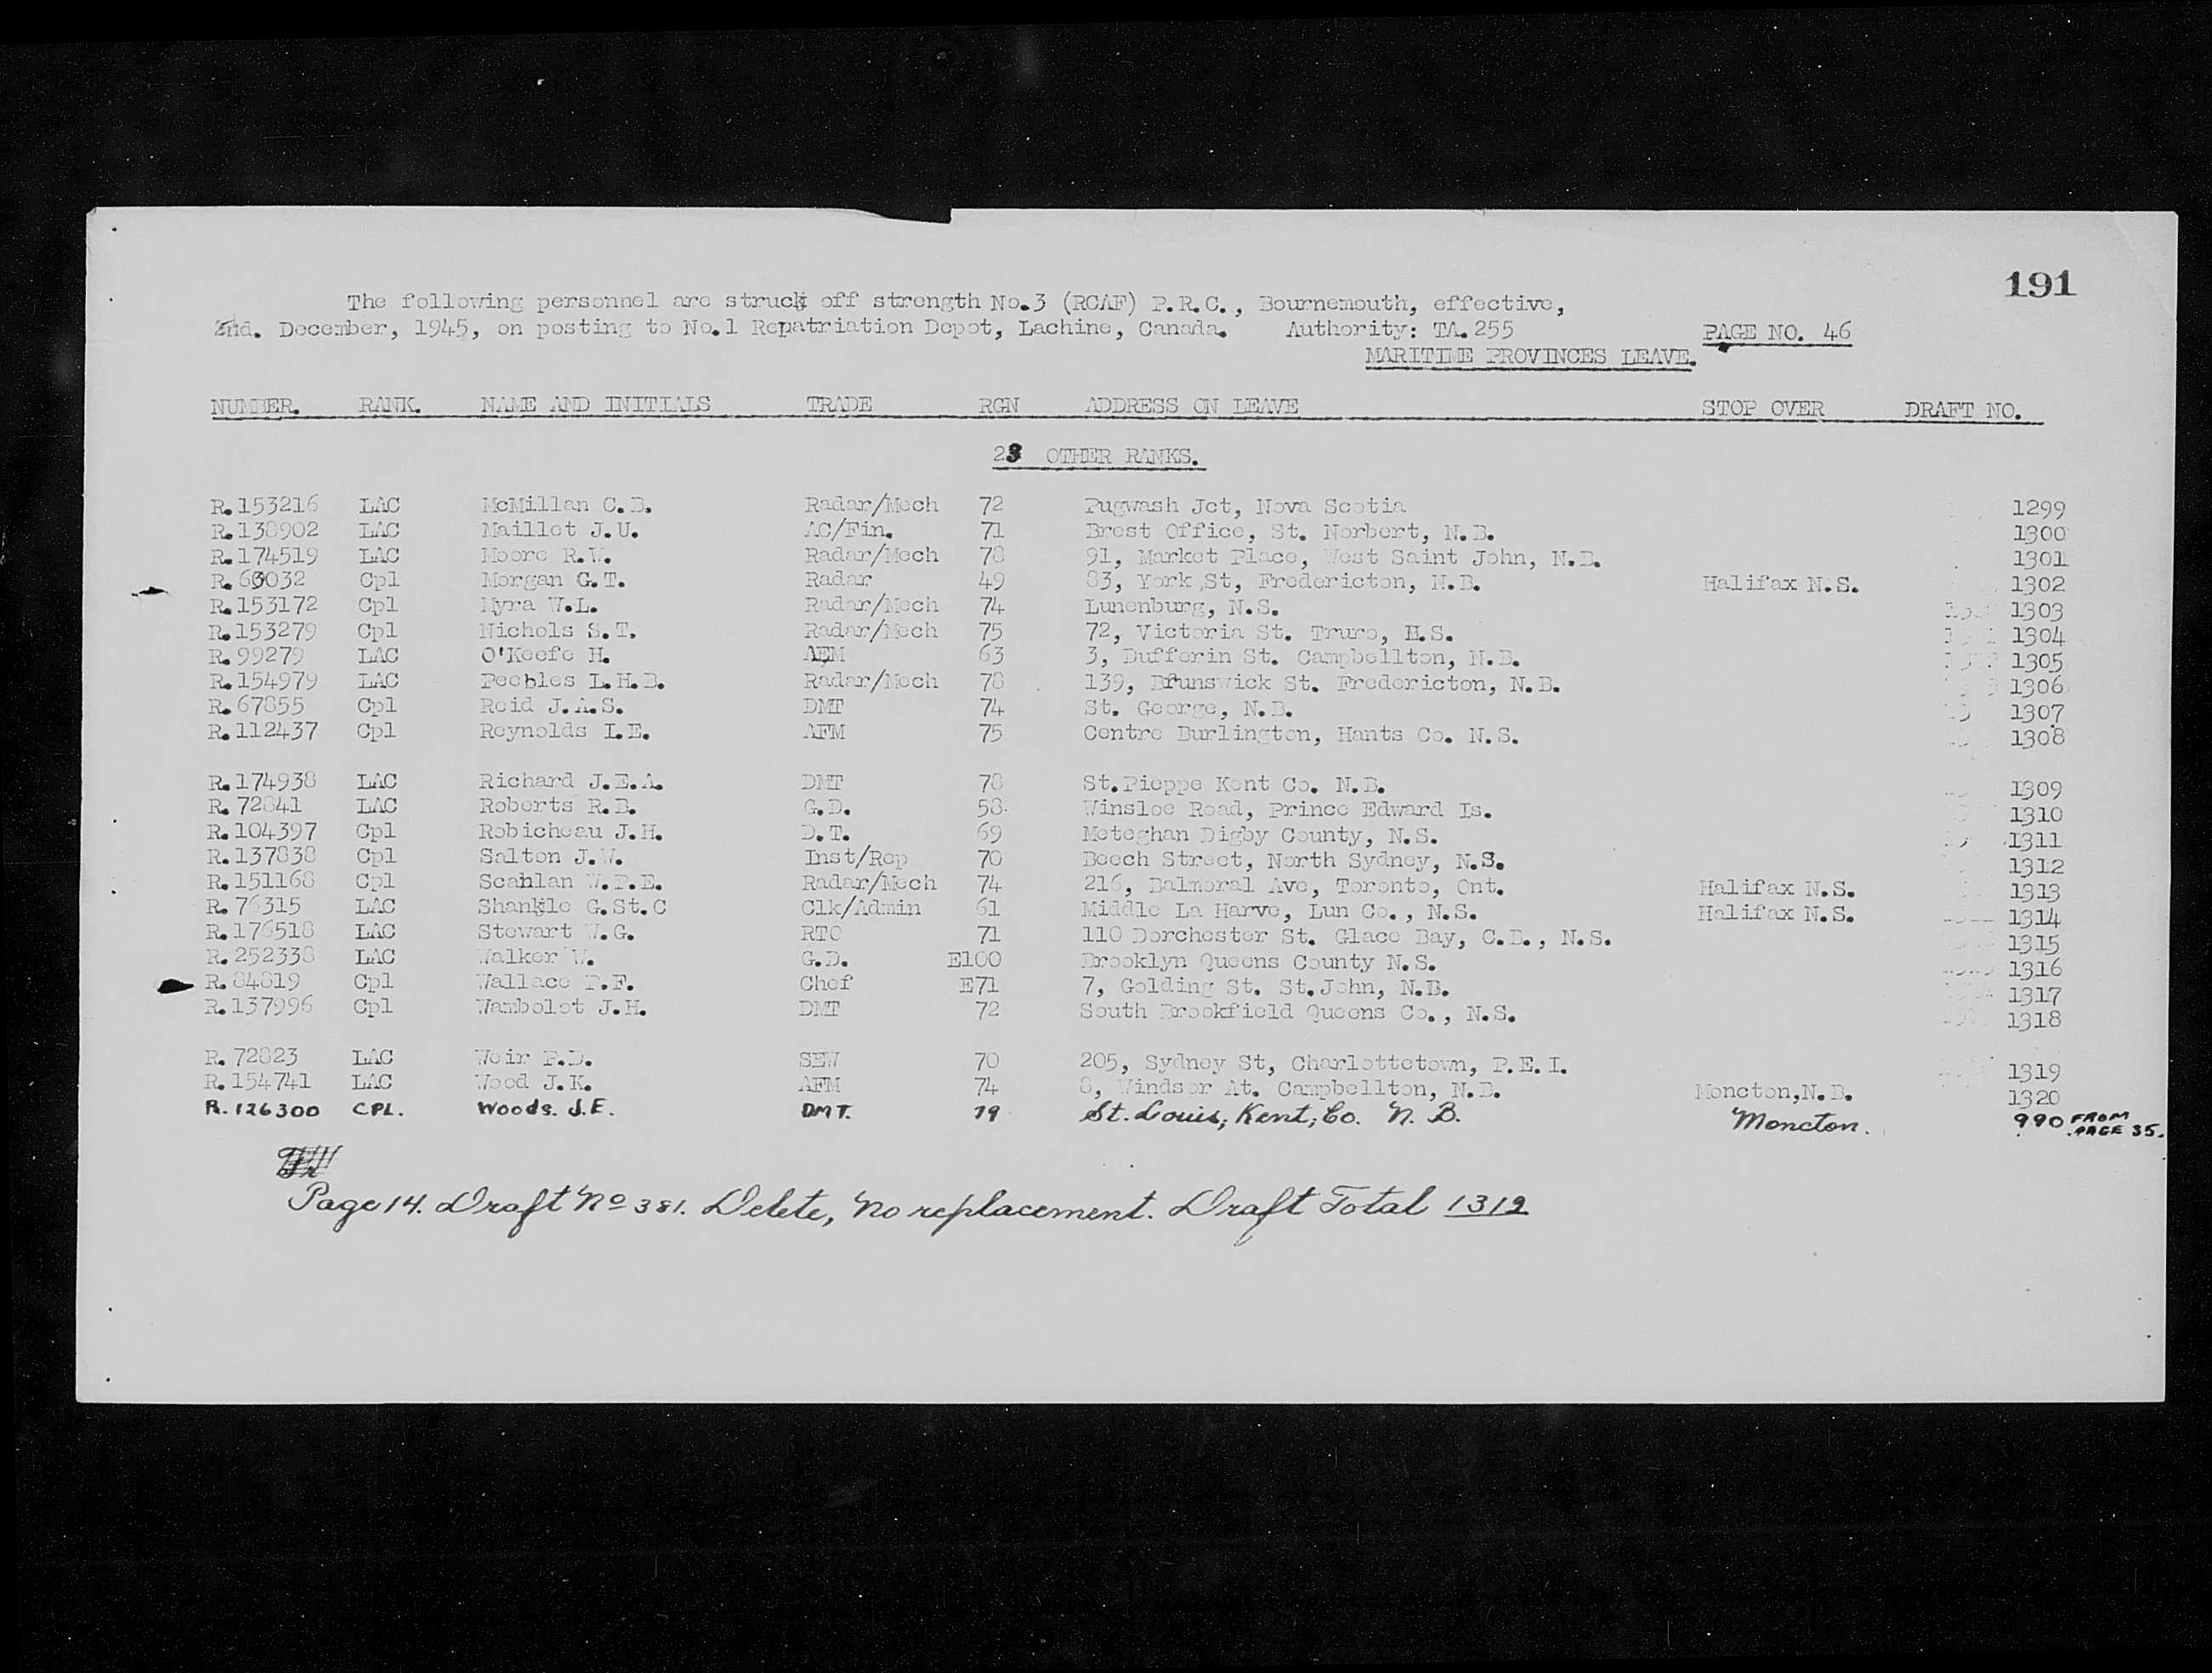 191
The following personnel are struck off strength No.3 (RCAF) P.R.C., Bournemouth, effective,
2nd. December, 1945, on posting to No.1 Repatriation Depot, Lachine, Canada. Authority: TA.255 PAGE NO. 46
MARITIME PROVINCES LEAVE.
NUMBER. RANK. NAME AND INITIALS TRADE RGN ADDRESS ON LEAVE STOP OVER DRAFT NO.
23 OTHER RANKS.
R.153216 LAC McMillan C.B. Radar/Mech 72 Pugwash Jct, Nova Scotia 1299
R.138902 LAC Maillet J.U. AC/Fin. 71 Brest Office, St. Norbert, N.B. 1300
R.174519 LAC Moore R.W. Radar/Mech 78 91, Market Place, West Saint John, N.B. 1301
R.60032 Cpl Morgan G.T. Radar 49 83, York St, Fredericton, N.B. Halifax N.S. 1302
R.153172 Cpl Myra W.L. Radar/Mech 74 Lunenburg, N.S. 1303
R.153279 Cpl Nichols S.T. Radar/Mech 75 72, Victoria St. Truro, N.S. 1304
R.99279 LAC O'Keefe H. AEM 63 3, Dufferin St. Campbellton, N.B. 1305
R.154979 LAC Peebles L.H.B. Radar/Mech 78 139, Brunswick St. Fredericton, N.B. 1306
R.67855 Cpl Reid J.A.S. DMT 74 St. George, N.B. 1307
R.112437 Cpl Reynolds L.E. AFM 75 Centre Burlington, Hants Co. N.S. 1308
R.174938 LAC Richard J.E.A. DMT 78 St.Pieppe Kent Co. N.B. 1309
R.72841 LAC Roberts R.B. G.D. 58 Winsloe Road, Prince Edward Is. 1310
R.104397 Cpl Robicheau J.H. D.T. 69 Meteghan Digby County, N.S. 1311
R.137838 Cpl Salton J.W. Inst/Rep 70 Beech Street, North Sydney, N.S. 1312
R.151168 Cpl Scanlan W.P.E. Radar/Mech 74 216, Balmoral Ave, Toronto, Ont. Halifax N.S. 1313
R.76315 LAC Shankle G.St.C Clk/Admin 61 Middle La Harve, Lun Co., N.S. Halifax N.S. 1314
R.176518 LAC Stewart W.G. RTO 71 110 Dorchester St. Glace Bay, C.B., N.S. 1315
R.252338 LAC Walker W. G.D. E100 Brooklyn Queens County N.S. 1316
R.84819 Cpl Wallace P.F. Chef E71 7, Golding St. St.John, N.B. 1317
R.137996 Cpl Wambolot J.H. DMT 72 South Brookfield Queens Co., N.S. 1318
R.72823 LAC Weir P.D. SEW 70 205, Sydney St, Charlottetown, P.E.I. 1319
R.154741 LAC Wood J.K. AFM 74 8, Windsor At. Campbellton, N.B. Moncton,N.B. 1320
R.126300 CPL. Woods. J.E. DMT. 79 St. Louis, Kent, Co. N. B. Moncton. 990 FROM PAGE 35.
Page 14. Draft No 381. Delete, No replacement. Draft Total 1319